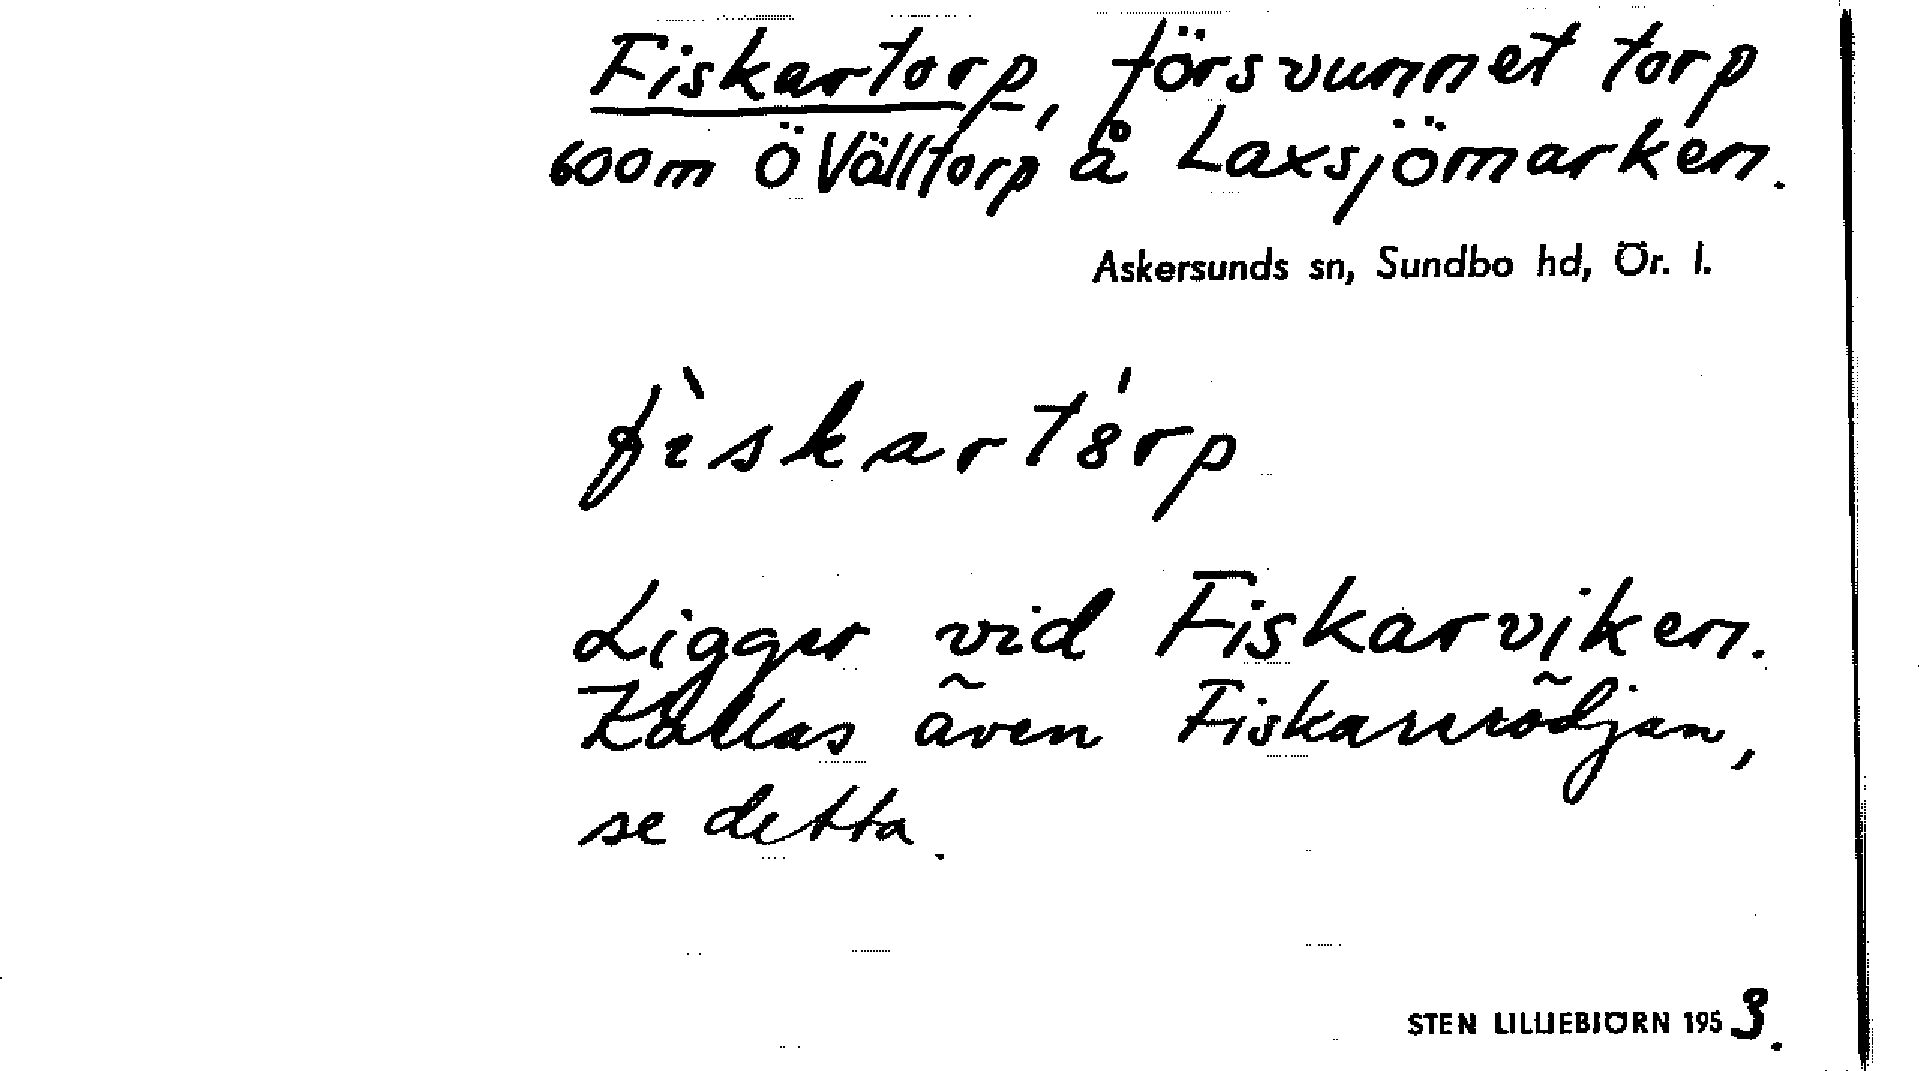 Fiskartorp, försvunnet torp
600m Ö Välltorp å Laxsjömarken.
Askersunds sn, Sundbo hd, Ör. l.
fìskartórp
Ligger vid Fiskarviken.
Kallas även Fiskarrödjan,
se detta.
STEN LILLIEBJÖRN 1953.